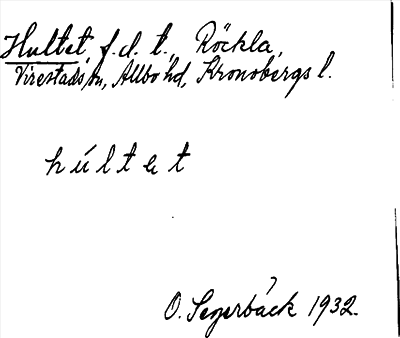 Hultet, f.d. t., Röckla,
Virestads sn, Allbo hd, Kronobergs l.
húltet
O. Segerbäck 1932.